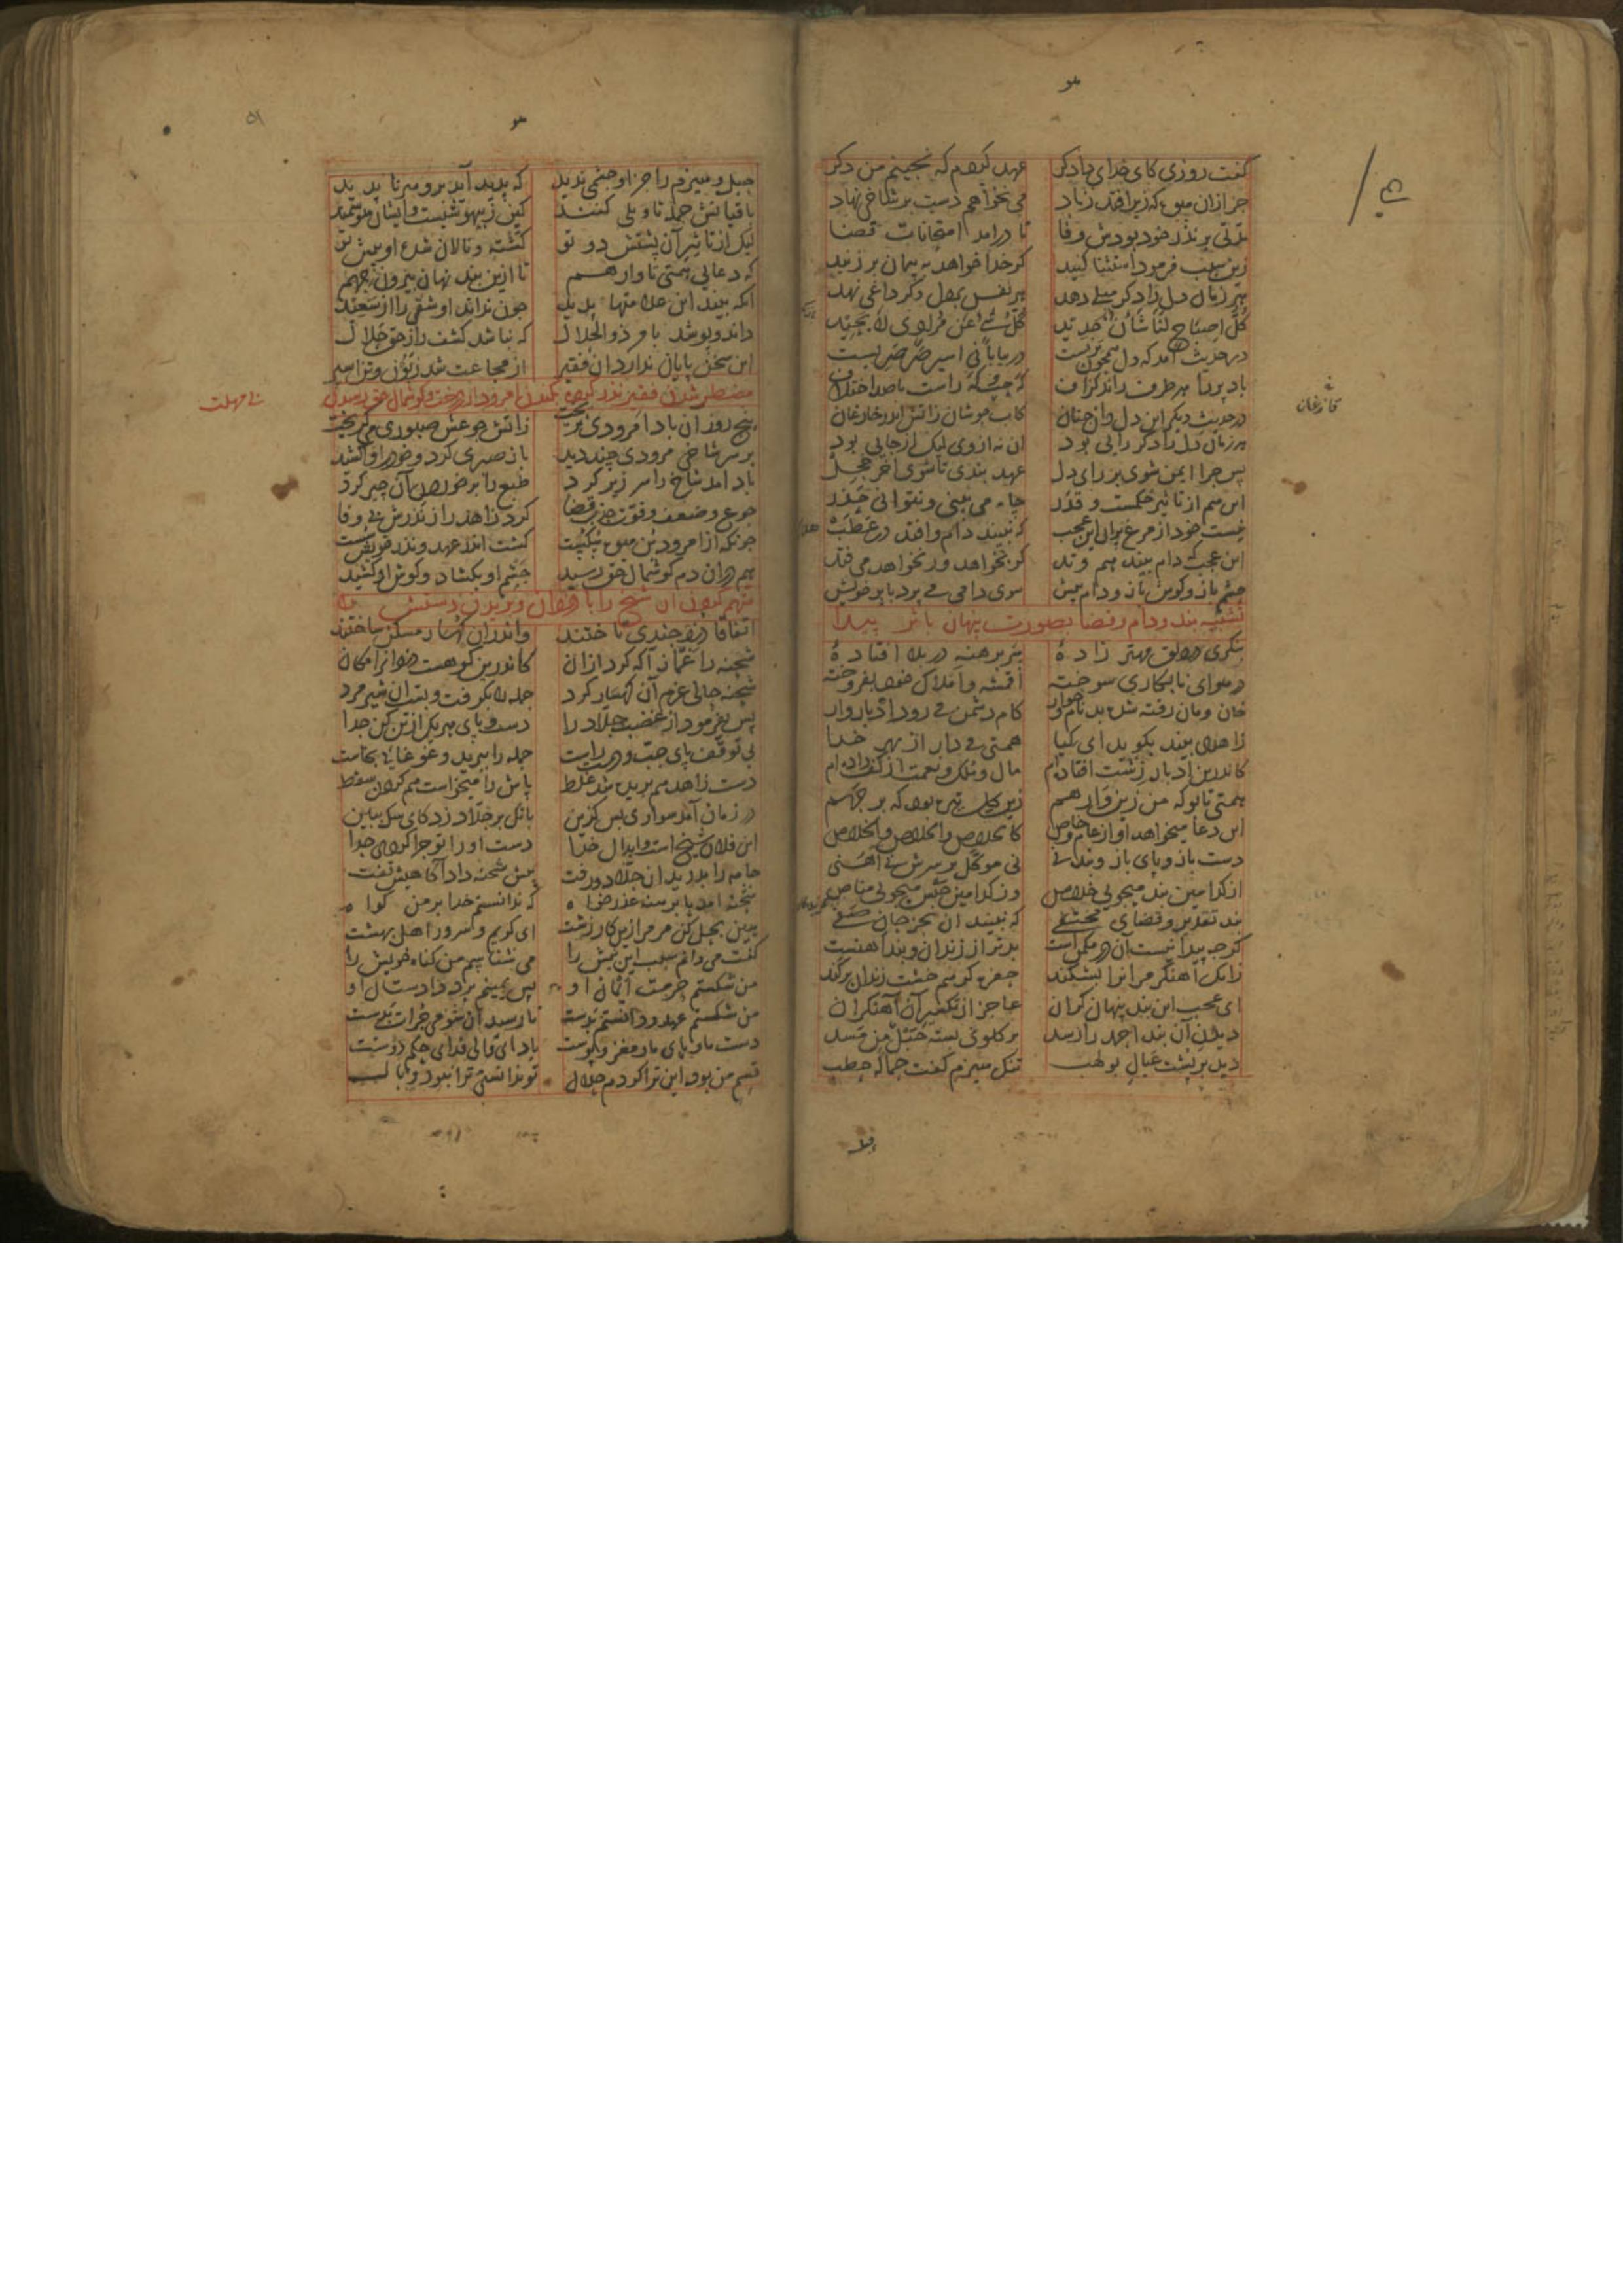 گفت روزی کای خدای دادگر عهد کردم که نچینم من دگر
جز ازان میوه که زیر افتد زباد می نخواهم دست بر شاخی نهاد
مدتی بر نذر خود بودش وفا تا درآمد امتحانات قضا
زین سبب فرمود استثنا کنید گر خدا خواهد به پیمان بر زنید
هر زمان دل را دگر میلی دهد هر نفس بر دل دگر داغی نهد
کل اصباح لنا شان جدید کل شیء عن مرادی لا یحید
در حدیث آمد که دل همچون پریست در بیابانی اسیر صرصریست
باد پر را هر طرف راند گزاف گه چپ و گه راست با صد اختلاف
در حدیث دیگر این دل دان چنان کاب جوشان زاتش اندر قازغان
هر زمان دل را دگر رایی بود آن نه از وی لیک از جایی بود
پس چرا ایمن شوی بر رای دل عهد بندی تا شوی آخر خجل
این هم از تاثیر حکمست و قدر چاه می بینی و نتوانی حذر
نیست خود از مرغ پران این عجب که نبیند دام و افتد در عطب
این عجب که دام بیند هم وتد گر بخواهد ور نخواهد می فتد
چشم باز و گوش باز و دام پیش سوی دامی می پرد با پر خویش
تشبیه بند و دام و قضا بصورت پنهان باثر پیدا
بنگری در دلق مهتر زاده سر برهنه در بلا افتاده
در هوای نابکاری سوخته اقمشه و املاک خود بفروخته
خان و مان رفته شده بد نام و خوار کام دشمن می رود ادبار وار
زاهدی بیند بگوید ای کیا همتی می دار از بهر خدا
کاندرین ادبار زشت افتاده ام مال و ملک و نعمت از کف داده ام
همتی تا بو که من زین وا رهم زین گل تیره بود که بر جهم
این دعا میخواهد او از عام و خاص کالخلاص والخلاص والخلاص
دست باز و پای باز و بند نی نی موکل بر سرش نی آهنی
از کدامین بند میجویی خلاص وز کدامین حبس میجویی مناص
بند تقدیر و قضای مختفی که نبیند آن بجز جان صفی
گرچه پیدا نیست آن در مکمن است بدتر از زندان و بند آهنست
زانک آهنگر مر آنرا بشکند حفره گر هم خشت زندان بر کند
ای عجب این بند پنهان گران عاجز از تکسیر آن آهنگران
دیدن آن بند احمد را رسد بر گلوی بسته حبل من مسد
دید بر پشت عیال بولهب تنگ هیزم گفت حماله حطب
حبل و هیزم را جز او چشمی ندید که پدید آید برو هر ناپدید
باقیانش جمله تاویلی کنند کین ز بیهوشیست و ایشان هوشمند
لیک از تاثیر آن پشتش دو تو گشته و نالان شده او پیش تو
که دعایی همتی تا وا رهم تا ازین بند نهان بیرون جهم
آنکه بیند این علامتها پدید چون نداند او شقی را از سعید
داند و پوشد بامر ذوالجلال که نباشد کشف راز حق حلال
این سخن پایان ندارد آن فقیر از مجاعت شد زبون و تن اسیر
مضطر شدن فقیر نذر کرده بکندن امرود از درخت و گوشمال حق رسیدن
بی مهلت
پنج روز آن باد امرودی نریخت زاتش جوعش صبوری می گریخت
بر سر شاخی مرودی چند دید باز صبری کرد و خود را وا کشید
باد آمد شاخ را سر زیر کرد طبع را بر خوردن آن چیر کرد
جوع و ضعف و قوت جذب قضا کرد زاهد را ز نذرش بی وفا
چونکه از امرودبن میوه شکست گشت اندر عهد و نذر خویش سست
هم دران دم گوشمال حق رسید چشم او بگشاد و گوش او کشید
متهم کردن آن شیخ را با دزدان و بریدن دستش
اتفاقا دزد چندی تاختند واندران کهسار مسکن ساختند
شحنه را غماز آگه کرد ازان کاندرین کوهست دزدانرا مکان
شحنه حالی عزم آن کهسار کرد جمله را بگرفت و بست آن شیر مرد
پس بفرمود از غضب جلاد را دست و پای هر یکی از تن کن جدا
بی توقف پای چپ و دست راست جمله را ببرید و غوغایی بخاست
دست زاهد هم بریده شد غلط پاش را میخواست هم کردن سقط
در زمان آمد سواری بس گزین بانگ بر جلاد زد کای سگ ببین
این فلان شیخ است و ابدال خدا دست او را تو چرا کردی جدا
جامه را بدرید آن جلاد و رفت پیش شحنه داد آگاهیش تفت
شحنه آمد پا برهنه عذر خواه که ندانستم خدا بر من گواه
هین بحل کن مر مرا زین کار زشت ای کریم و سرور اهل بهشت
گفت می دانم سبب این نیش را می شناسم من گناه خویش را
من شکستم حرمت ایمان او پس یمینم برد دادستان او
من شکستم عهد و دانستم بدست تا رسید آن شومی جرات بدست
دست ما و پای ما و مغز و پوست باد ای والی فدای حکم دوست
قسم من بود این ترا کردم حلال تو ندانستی ترا نبود وبال
قازغان
۵۱